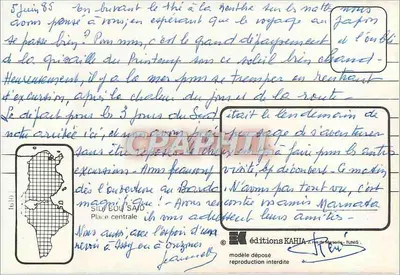 5 juin 85 En buvant le thé à la menthe sur les nattes, nous
avons pensé à vous, en espérant que le voyage au Japon
se passe bien? Pour nous, c'est le grand dépaysement et l'oubli
de la grisaille du Printemps sur ce soleil bien chaud
Heureusement, il y a la mer pour se tremper en rentrant
d'excursion, après la chaleur du jour et de la route.
Le départ pour les 3 jours du Sud était le lendemain de
notre arrivée ici, et
sans être
excursion. Avons beaucoup visité, et découvert. Ce matin,
dès l'ouverture au Bardo. N'avons pas tout vu, c'est
magnifique! Avons rencontré mamie
ils vous adressent leurs amitiés.
Nous aussi, avec l'espoir d'un
revoir à
Jeannette
René
CPARAMA
SIDI BOU SAID
Place centrale
éditions KAHIA
TUNIS
modèle déposé
reproduction interdite